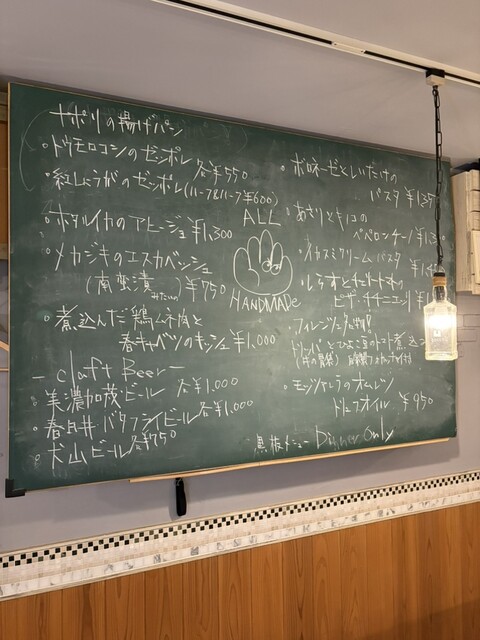 ナポリの揚げパン
・トウモロコシのゼッポレ 各¥550
・紅しょうがのゼッポレ(ハーフ&ハーフ¥600)
・ホタルイカのアヒージョ ¥1,300
・メカジキのエスカベッシュ
(南蛮漬みたいの) ¥750
・煮込んだ鶏ムネ肉と
春キャベツのキッシュ ¥1,000
- Claft Beer -
・美濃加茂ビール 各¥1,000
・春日井バタフライビール 各¥1,000
・犬山ビール 各¥750
ALL
HANDMADe
・ボロネーゼとしいたけの
パスタ
・あさりとキノコの
ペペロンチーノ
・イカスミクリームパスタ
・しらすとチェリートマトの
ピザ・チチニエッリ
・フィレンツェ名物!
トリッパとひよこ豆のトマト煮込
(牛の胃袋)
・モッツァレラのオムレツ
トリュフオイル ¥950
黒板メニュー Dinner Only